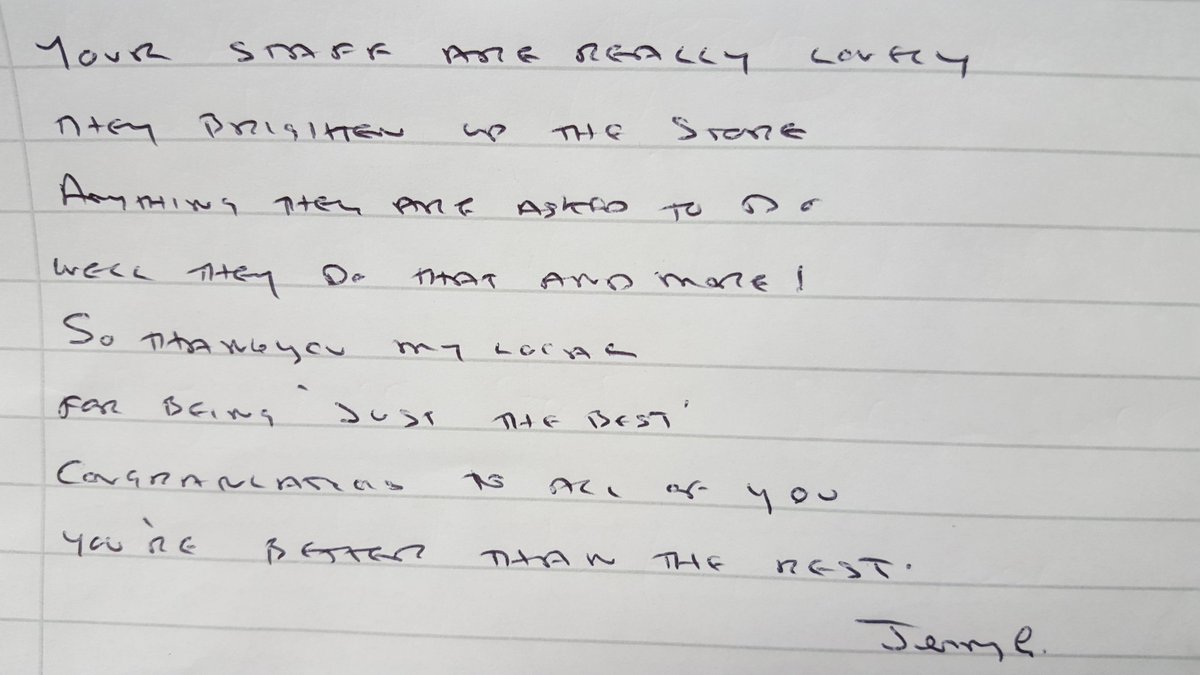 YOUR STAFF ARE REALLY LOVELY
THEY BRIGHTEN UP THE STORE
ANYTHING THEY ARE ASKED TO DO
WELL THEY DO THAT AND MORE!
SO THANKYOU MY LOCAL
FOR BEING 'JUST THE BEST'
CONGRATULATIONS TO ALL OF YOU
YOU'RE BETTER THAN THE REST.
Jerry G.